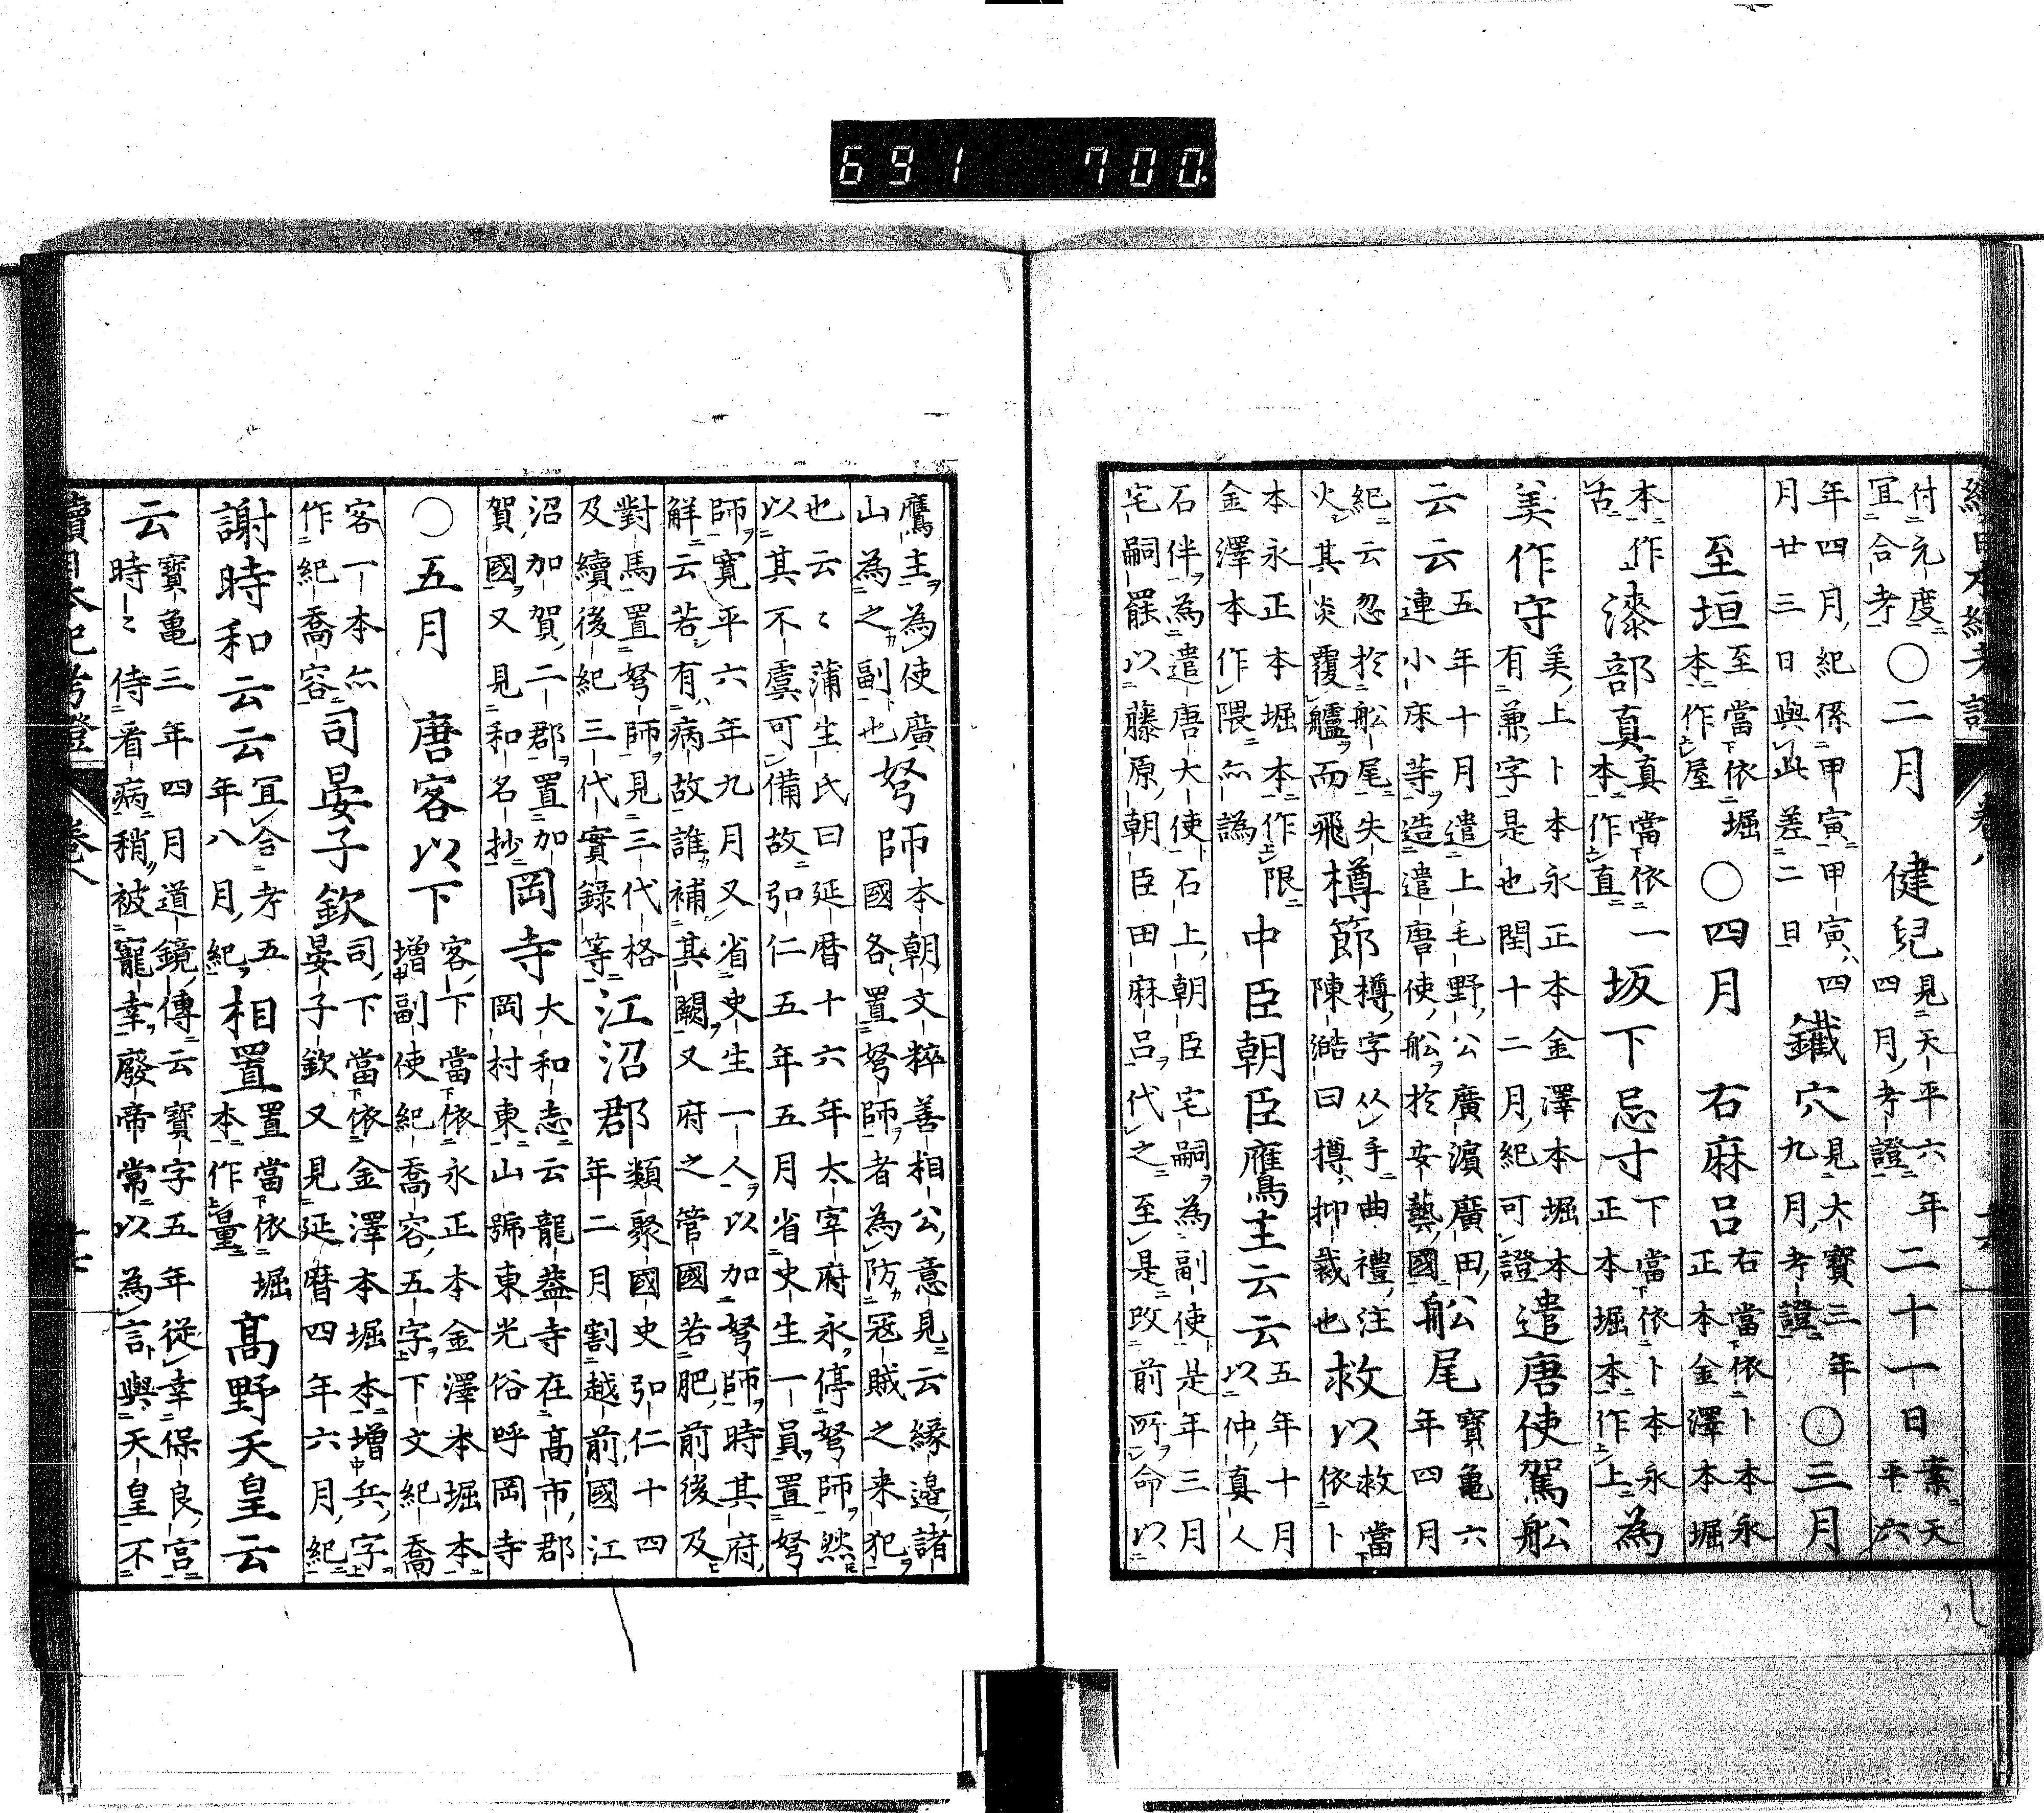 691 700
續日本紀考證 卷八
付元度宜合考○二月 健兒見天平六年四月考證二十一日案天平六
年四月紀係甲寅甲寅四月廿三日與此差二日 鐵穴見大寶三年九月考證○三月
至垣至當依堀本作屋○四月 右麻呂右當依卜本永正本金澤本堀
本作古漆部直真當依本作直一坂下忌寸下當依卜本永正本堀本作上為
美作守美上卜本永正本金澤本堀本有兼字是也閏十二月紀可證遣唐使駕舩
云云五年十月遣上毛野公廣濱廣田連小床等造遣唐使舩於安藝國舩尾寶龜六年四月
紀云忽於舩尾失火其炎覆艫而飛樽節樽字从手曲禮注陳澔曰撙抑裁也救以救當依卜
本永正本堀本作限金澤本作隈亦譌 中臣朝臣鷹主云云五年十月以仲真人
石伴為遣唐大使石上朝臣宅嗣為副使是年三月宅嗣罷以藤原朝臣田麻呂代之至是改前所命以
鷹主為使廣山為之副也弩師本朝文粹善相公意見云緣邊諸國各置弩師者為防寇賊之来犯
也云云蒲生氏曰延曆十六年太宰府永停弩師然以其不虞可備故弘仁五年五月省史生一員置弩
師寬平六年九月又省史生一人以加弩師時其府解云若有病故誰補其闕又府之管國若肥前後及
對馬置弩師見三代格及續後紀三代實錄等江沼郡類聚國史弘仁十四年二月割越前國江
沼加賀二郡置加賀國又見和名抄岡寺大和志云龍蓋寺在高市郡岡村東山號東光俗呼岡寺
○五月 唐客以下客下當依永正本金澤本堀本增副使紀喬容五字下文紀喬
客一本亦作紀喬容司晏子欽司下當依金澤本堀本增兵字晏子欽又見延曆四年六月紀
謝時和云云宜合考五年八月紀相置置當依堀本作量 高野天皇云
云寶龜三年四月道鏡傳云寶字五年從幸保良宮時時侍看病稍被寵幸廢帝常以為言與天皇不
續日本紀考證 卷八